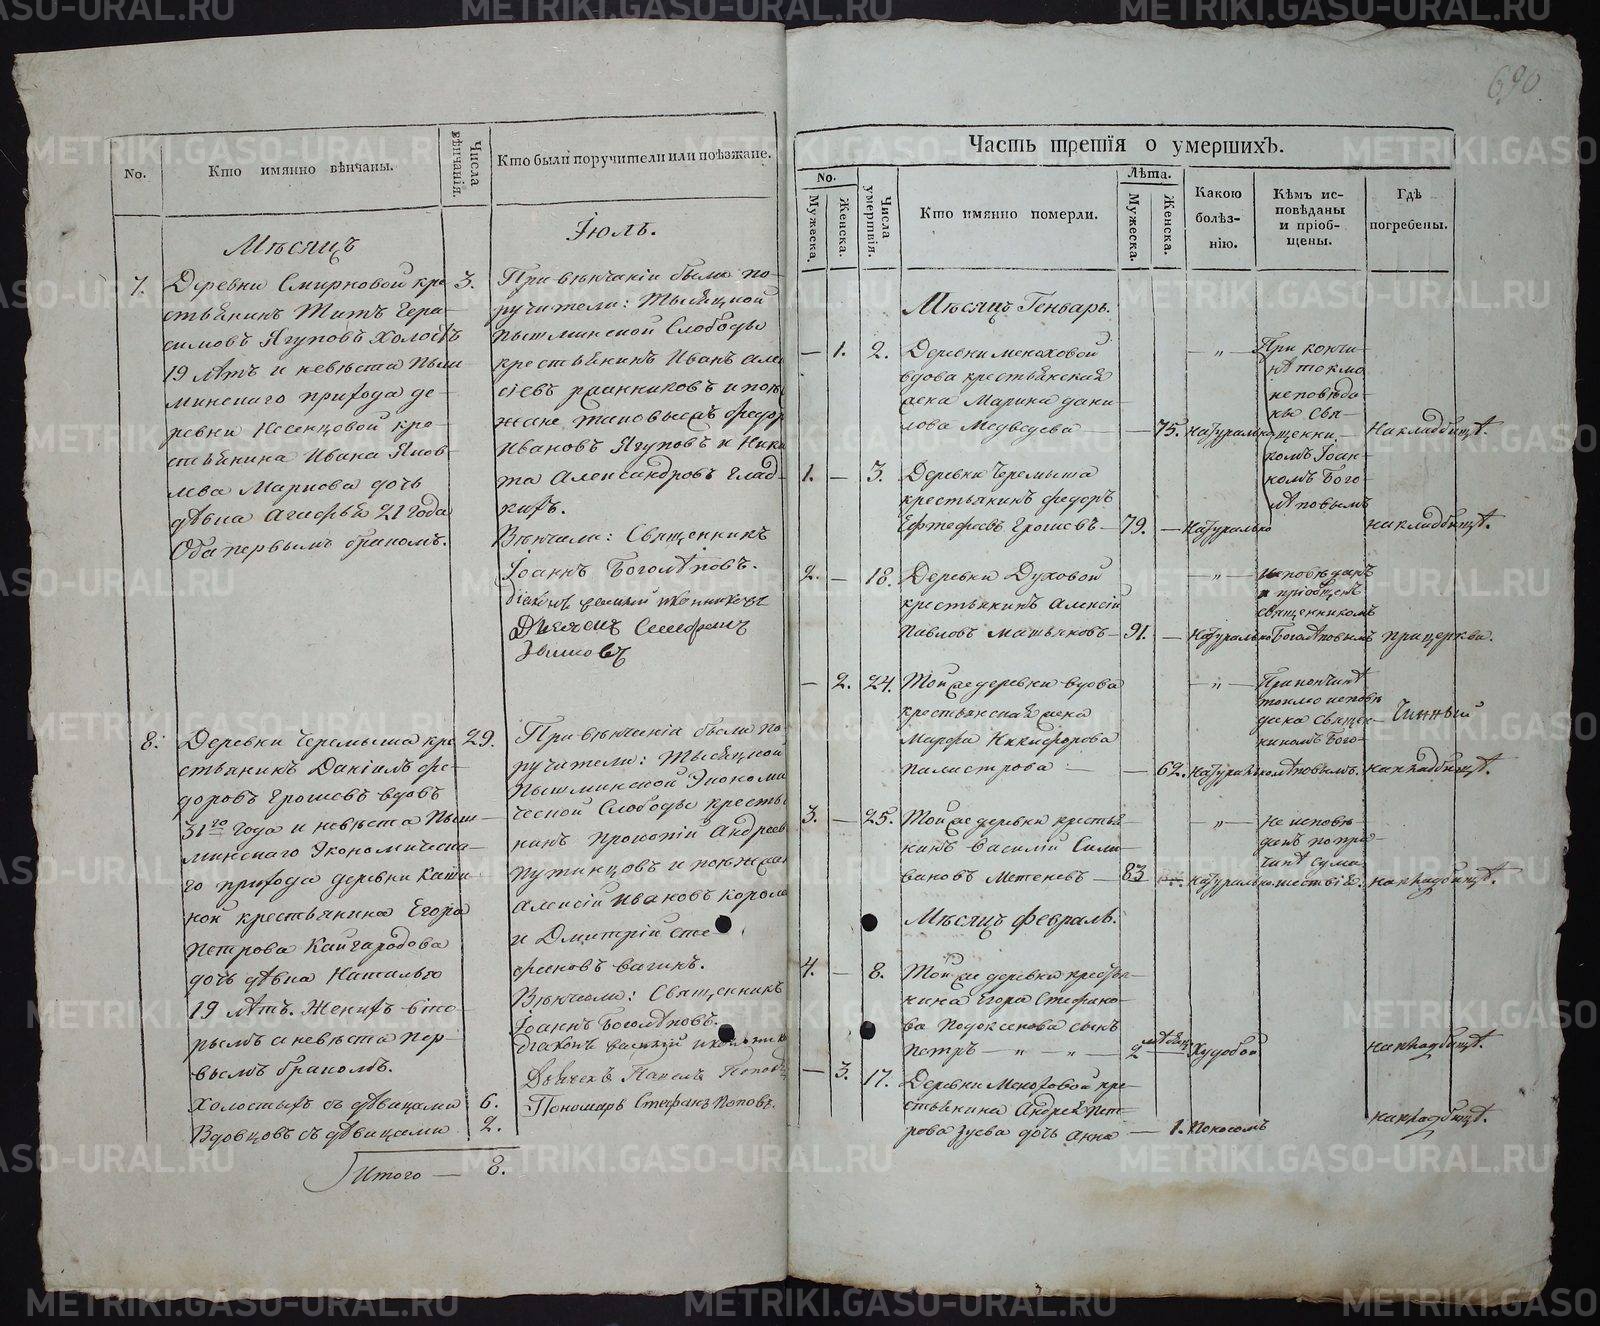 690
No.
Кто имянно вѣнчаны.
Числа вѣнчанія.
Кто были поручители или поѣзжане.
Мѣсяцъ
Іюль.
7.
Деревни Смирновой кре
стьянинъ Титъ Гера-
симовъ Ягуповъ холостъ
19 лѣтъ и невѣста Пыш
минскаго прихода де-
ревни
кре-
стьянина Ивана Яков-
лева Маркова дочь
дѣвка Агафья 21 года
Оба первымъ бракомъ.
3.
При вѣнчаніи были по-
ручители: Тысяцкой
Пышминской Слободы
крестьянинъ Иванъ Алек
сіевъ
и поѣз
жане
Федор
Ивановъ Ягуповъ и Ники
та Александровъ Глад-
кихъ.
Вѣнчали: Священникъ
Іоаннъ Боголѣповъ.
діаконъ
8.
Деревни Черемыша кре
стьянинъ Даніилъ Фе-
доровъ Грошевъ вдовъ
31го года и невѣста Пыш-
минскаго Экономическа-
го прихода деревни
крестьянина Егора
Петрова Кайгародова
дочь дѣвка Наталья
19 лѣтъ. Женихъ вто-
рымъ а невѣста пер-
вымъ бракомъ.
29.
При вѣнчаніи были по
ручители: Тысяцкой
Пышминской Экономи
ческой Слободы кресть
янинъ Прокопій Андреев
Путинцовъ и поѣзжан
Алексій Ивановъ
и Дмитрій Сте-
фановъ Вагинъ.
Вѣнчали: Священникъ
Іоаннъ Боголѣповъ.
діаконъ Василій
Дьячекъ Павелъ Поповъ
Пономарь Стефанъ Поповъ.
Холостыхъ съ дѣвицами 6.
Вдовцовъ съ дѣвицами 2.
Итого — 8.
Часть третія о умершихъ.
No.
Мужеска.
Женска.
Числа умертвія.
Кто имянно померли.
Лѣта.
Мужеска.
Женска.
Какою болѣз-
нію.
Кѣмъ ис-
повѣданы
и пріоб-
щены.
Гдѣ
погребены.
Мѣсяцъ Генварь.
— 1. 2.
Деревни
вдова крестьянская
жена Марина Дани-
лова Медведева — 75. натурально
При кончи-
нѣ токмо
исповѣда-
ны Свя-
щенни-
комъ Іоан-
номъ Бого-
лѣповымъ
На кладбищѣ.
1. — 3.
Деревни Черемыша
крестьянинъ Федоръ
Грошевъ — 79. — Натурально
на кладбищѣ.
2. — 18.
Деревни Духовой
крестьянинъ Алексій
Павловъ — 91. — Натурально
— " —
исповѣданъ
и пріобщенъ
священникомъ
Боголѣповымъ
при церкви.
— 2. 24.
Той же деревни вдова
крестьянская жена
Марфа Никифорова
— 62. Натурально
— " —
При кончинѣ
токмо исповѣ
дана Священ-
никомъ Бого-
лѣповымъ.
на кладбищѣ.
3. — 25.
Той же деревни кресть-
янинъ Василій Сили-
вановъ — 83 — натурально
— " —
Не исповѣ-
данъ по при-
чинѣ сума-
шествія.
на кладбищѣ.
Мѣсяцъ Февраль.
4. — 8.
Той же деревни крестья-
нина Егора Стефано-
ва сынъ
Петръ — " — " — 2 мѣсяц Худобой
на кладбищѣ.
— 3. 17.
Деревни кре-
стьянина Андрея Пет-
рова Зуева дочь Анна — 1. Поносомъ
на кладбищѣ.